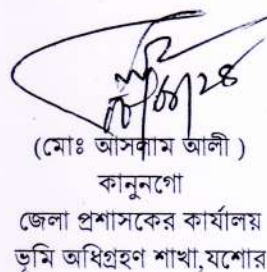 (মোঃ আসলাম আলী )
কানুনগো
জেলা প্রশাসকের কার্যালয়
ভূমি অধিগ্রহণ শাখা,যশোর